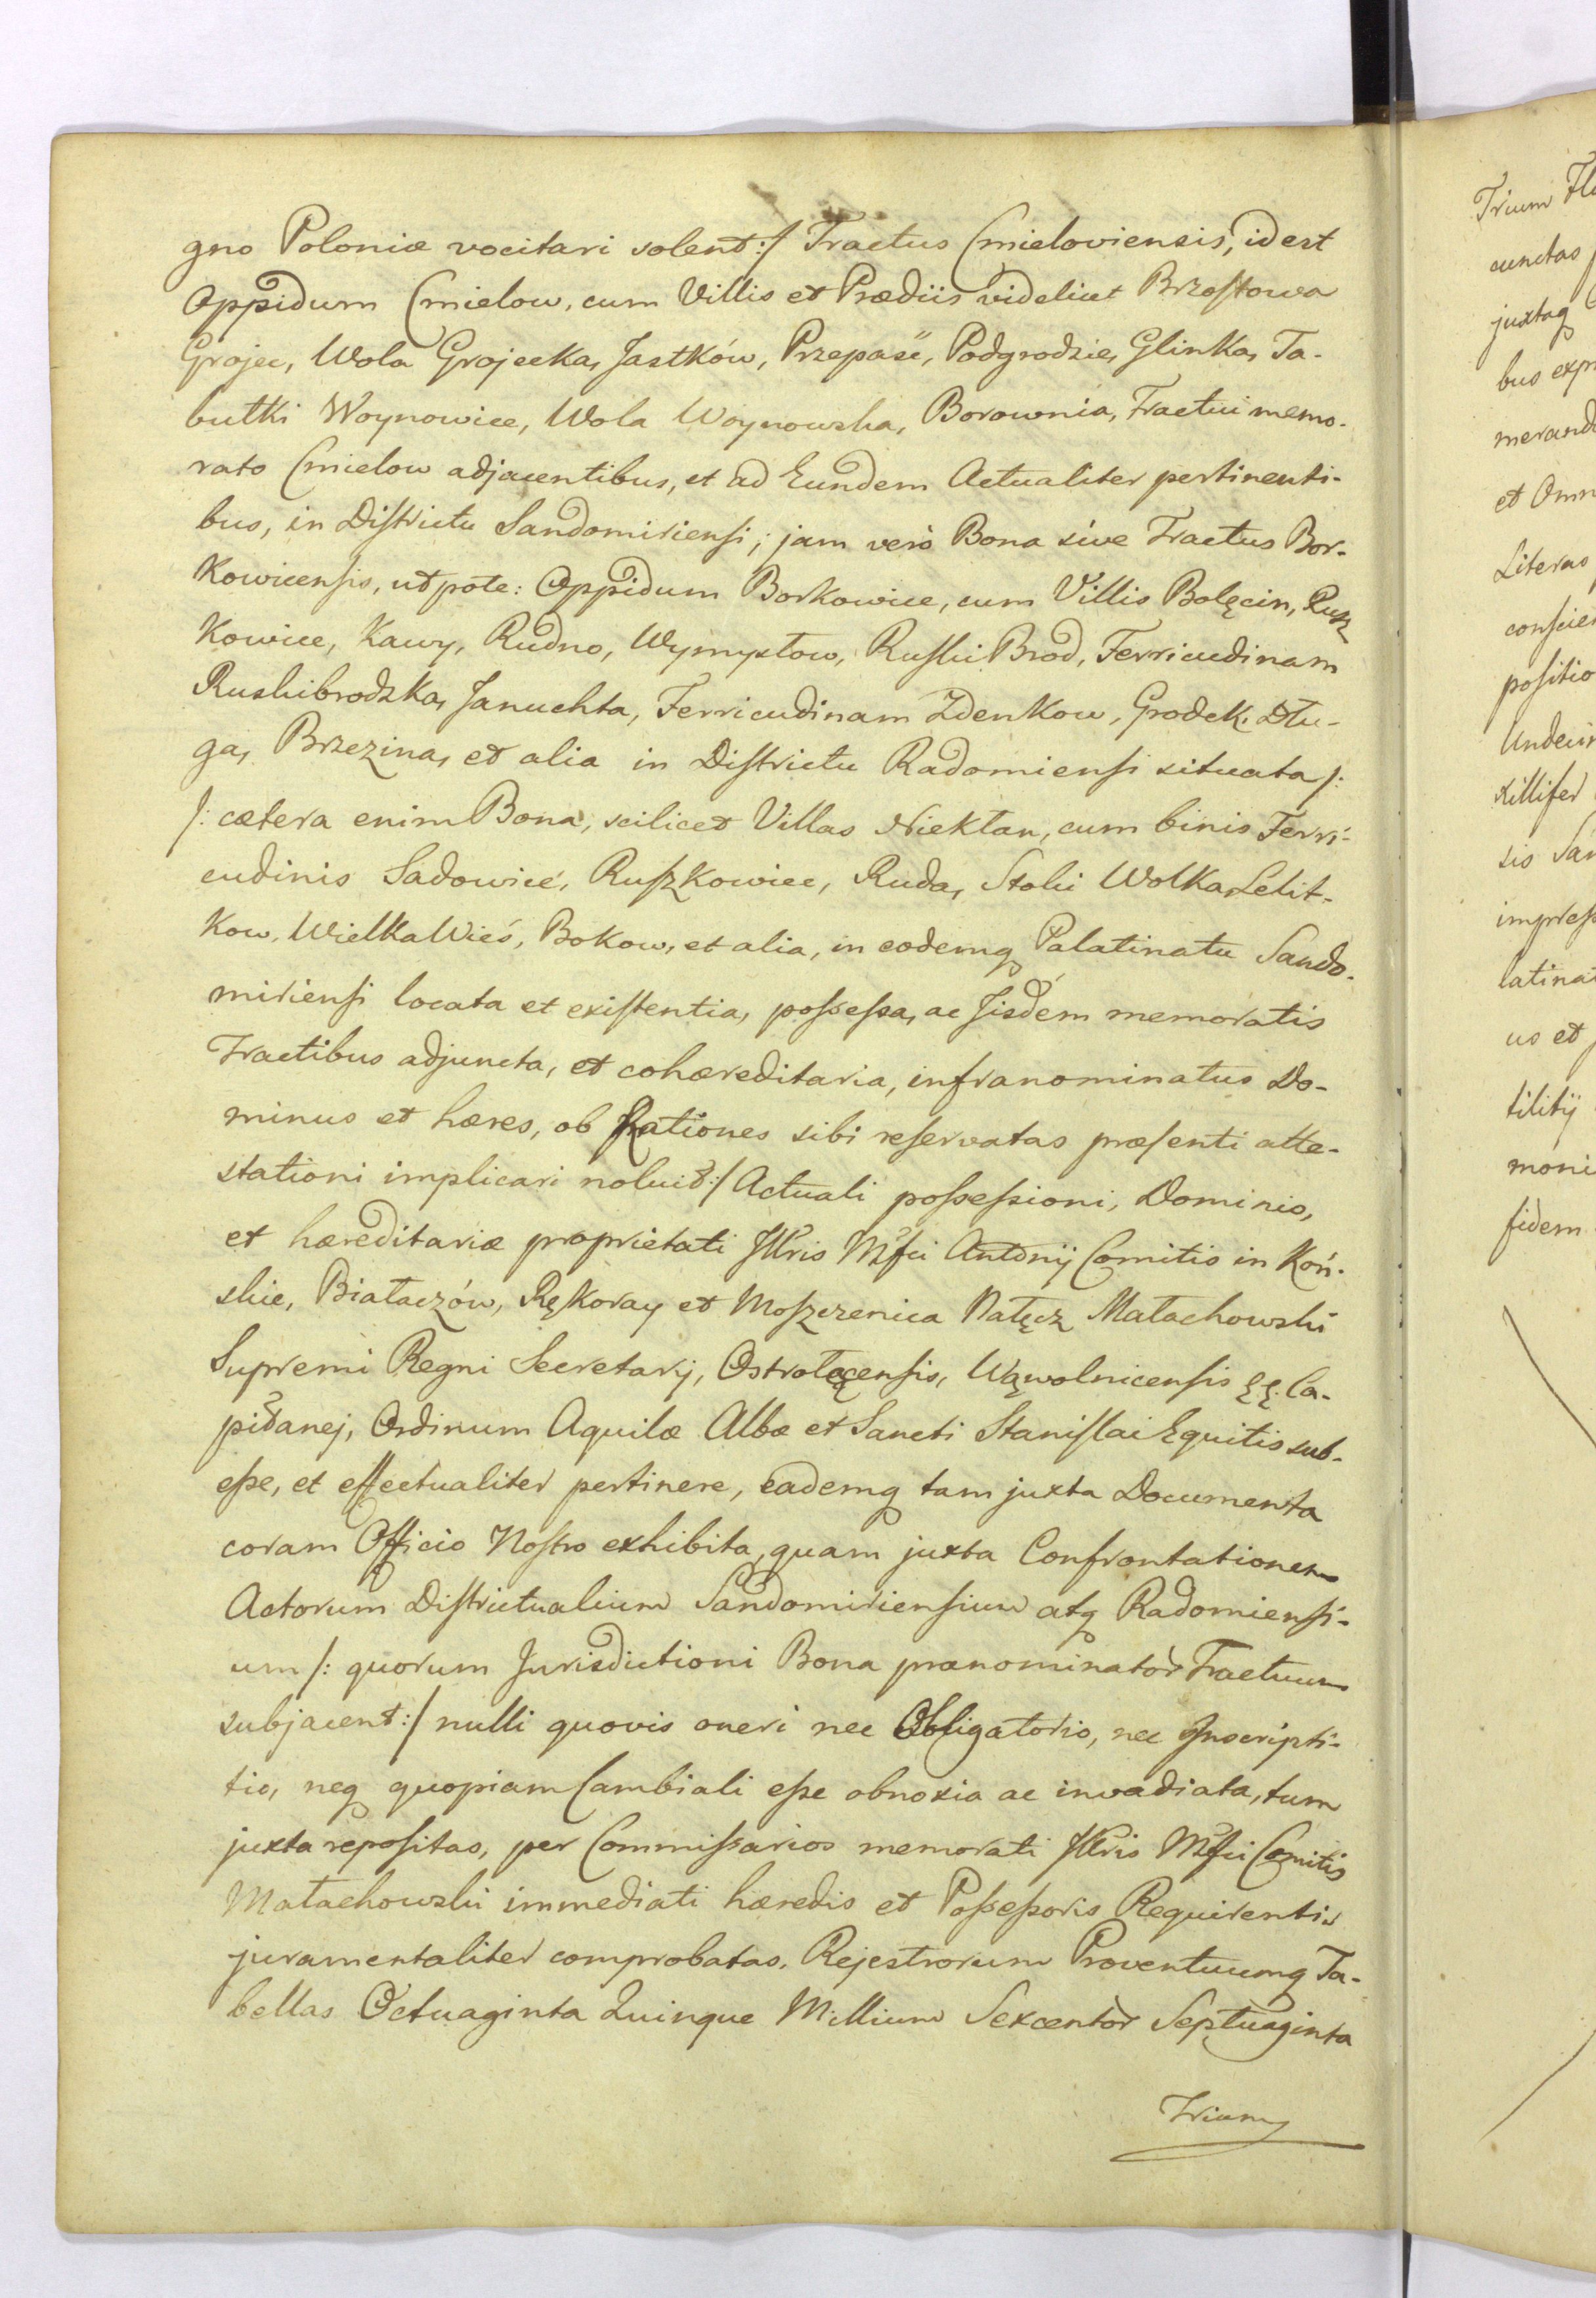 gno Poloniæ vocitari solent:/ Tractus Cmieloviensis, id est
Oppidum Cmielow, cum Villis et Prædiis videlicet Brzostowa
Grojec, Wola Grojecka, Jastków, Przepaść, Podgrodzie, Glinka, Ta-
butki Woynowice, Wola Woynowska, Borownia, Tractui memo-
rato Cmielow adjacentibus, et ad Eundem Actualiter pertinenti-
bus, in Districtu Sandomiriensi; jam verò Bona sive Tractus Bor-
kowicensis, utpote: Oppidum Borkowice, cum Villis Bolęcin, Rusz
kowice, Kawy, Rudno, Wymysłow, Ruski Brod, Ferricudinam
Ruskibrodzka, Januchta, Ferricudinam Zdenkow, Grodek, Dłu-
ga, Brzezina, et alia in Districtu Radomiensi situata /:
/: cætera enim Bona, scilicet Villas Niekłan, cum binis Ferri-
cudinis Sadowice, Ruszkowice, Ruda, Stoki Wolka, Lelit-
kow, Wielka Wieś, Bokow, et alia, in eodemq Palatinatu Sando-
miriensi locata et existentia, possessa, ac Iisdem memoratis
Tractibus adjuncta, et cohæreditaria, infranominatus Do-
minus et hæres, ob Rationes sibi reservatas præsenti atte-
stationi implicari noluit:/ Actuali possessioni, Dominio,
et hæreditariæ proprietati Jllris Mgfci Antonij Comitis in Koń-
skie, Białaczów, Rękoray et Moszczenica Nałęcz Małachowski
Supremi Regni Secretarij, Ostrołęcensis, Wąwolnicensis ęę. Ca-
pitanej, Ordinum Aquilæ Albæ et Sancti Stanislai Equitis sub-
esse, et effectualiter pertinere, eademq tam juxta Documenta
coram Officio Nostro exhibita, quam juxta Confrontationem
Actorum Districtualium Sandomiriensium atq Radomiensi-
um /: quorum Jurisdictioni Bona prænominator Tractuum
subjacent:/ nulli quovis oneri nec Obligatorio, nec Inscripti-
tio, neq quopiam Cambiali esse obnoxia ac invadiata, tum
juxta repositas, per Commissarios memorati Jllris Mgfci Comitis
Małachowski immediati hæredis et Possessoris Requirentis
juramentaliter comprobatas, Rejestrorum Proventuumq Ta-
bellas Octuaginta Quinque Millium Sexcentor Septuaginta
Trium
Trium
cunctas
juxtaq
bus
et
Literas
positio
us et
tilitij
moni
fidem